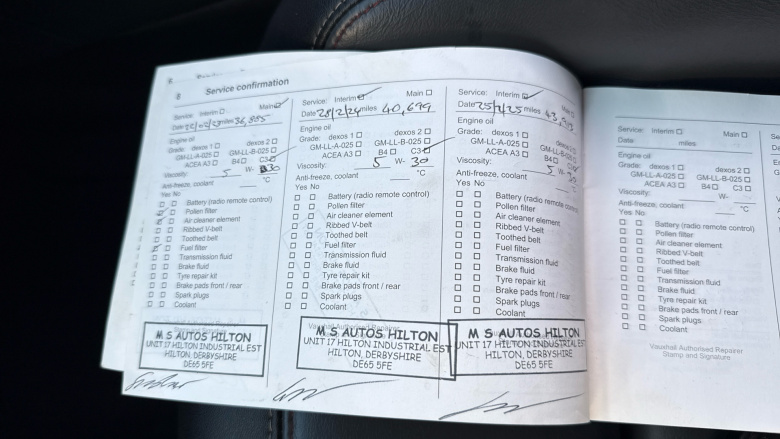 8
Service confirmation
Service: Interim ☐ Main ☑
Date miles 36,855
Engine oil
Grade: dexos 1 ☐ dexos 2 ☐
GM-LL-A-025 ☐ GM-LL-B-025 ☐
ACEA A3 ☐ B4 ☐ C3 ☑
Viscosity: 5 W- 30
Anti-freeze, coolant °C
Yes No
☐ ☐ Battery (radio remote control)
☑ ☐ Pollen filter
☑ ☐ Air cleaner element
☐ ☐ Ribbed V-belt
☐ ☐ Toothed belt
☑ ☐ Fuel filter
☐ ☐ Transmission fluid
☐ ☐ Brake fluid
☐ ☐ Tyre repair kit
☐ ☐ Brake pads front / rear
☐ ☐ Spark plugs
☐ ☐ Coolant
M S AUTOS HILTON
UNIT 17 HILTON INDUSTRIAL EST
HILTON, DERBYSHIRE
DE65 5FE
Service: Interim ☑ Main ☐
Date 28/2/24 miles 40,699
Engine oil
Grade: dexos 1 ☐ dexos 2 ☐
GM-LL-A-025 ☐ GM-LL-B-025 ☐
ACEA A3 ☐ B4 ☐ C3 ☑
Viscosity: 5 W- 30
Anti-freeze, coolant °C
Yes No
☐ ☐ Battery (radio remote control)
☐ ☐ Pollen filter
☐ ☐ Air cleaner element
☐ ☐ Ribbed V-belt
☐ ☐ Toothed belt
☐ ☐ Fuel filter
☐ ☐ Transmission fluid
☐ ☐ Brake fluid
☐ ☐ Tyre repair kit
☐ ☐ Brake pads front / rear
☐ ☐ Spark plugs
☐ ☐ Coolant
Vauxhall Authorised Repairer
M S AUTOS HILTON
UNIT 17 HILTON INDUSTRIAL EST
HILTON, DERBYSHIRE
DE65 5FE
Service: Interim ☑ Main
Date 25/2/25 miles
Engine oil
Grade: dexos 1 ☐ dexos 2 ☐
GM-LL-A-025 ☐ GM-LL-B-025
ACEA A3 ☐ B4 ☐
Viscosity: 5 W- 30
Anti-freeze, coolant °C
Yes No
☐ ☐ Battery (radio remote control)
☐ ☐ Pollen filter
☐ ☐ Air cleaner element
☐ ☐ Ribbed V-belt
☐ ☐ Toothed belt
☐ ☐ Fuel filter
☐ ☐ Transmission fluid
☐ ☐ Brake fluid
☐ ☐ Tyre repair kit
☐ ☐ Brake pads front / rear
☐ ☐ Spark plugs
☐ ☐ Coolant
M S AUTOS HILTON
UNIT 17 HILTON INDUSTRIAL EST
HILTON, DERBYSHIRE
DE65 5FE
Service: Interim ☐ Main ☐
Date miles
Engine oil
Grade: dexos 1 ☐ dexos 2 ☐
GM-LL-A-025 ☐ GM-LL-B-025 ☐
ACEA A3 ☐ B4 ☐ C3 ☐
Viscosity: W-
Anti-freeze, coolant °C
Yes No
☐ ☐ Battery (radio remote control)
☐ ☐ Pollen filter
☐ ☐ Air cleaner element
☐ ☐ Ribbed V-belt
☐ ☐ Toothed belt
☐ ☐ Fuel filter
☐ ☐ Transmission fluid
☐ ☐ Brake fluid
☐ ☐ Tyre repair kit
☐ ☐ Brake pads front / rear
☐ ☐ Spark plugs
☐ ☐ Coolant
Vauxhall Authorised Repairer
Stamp and Signature